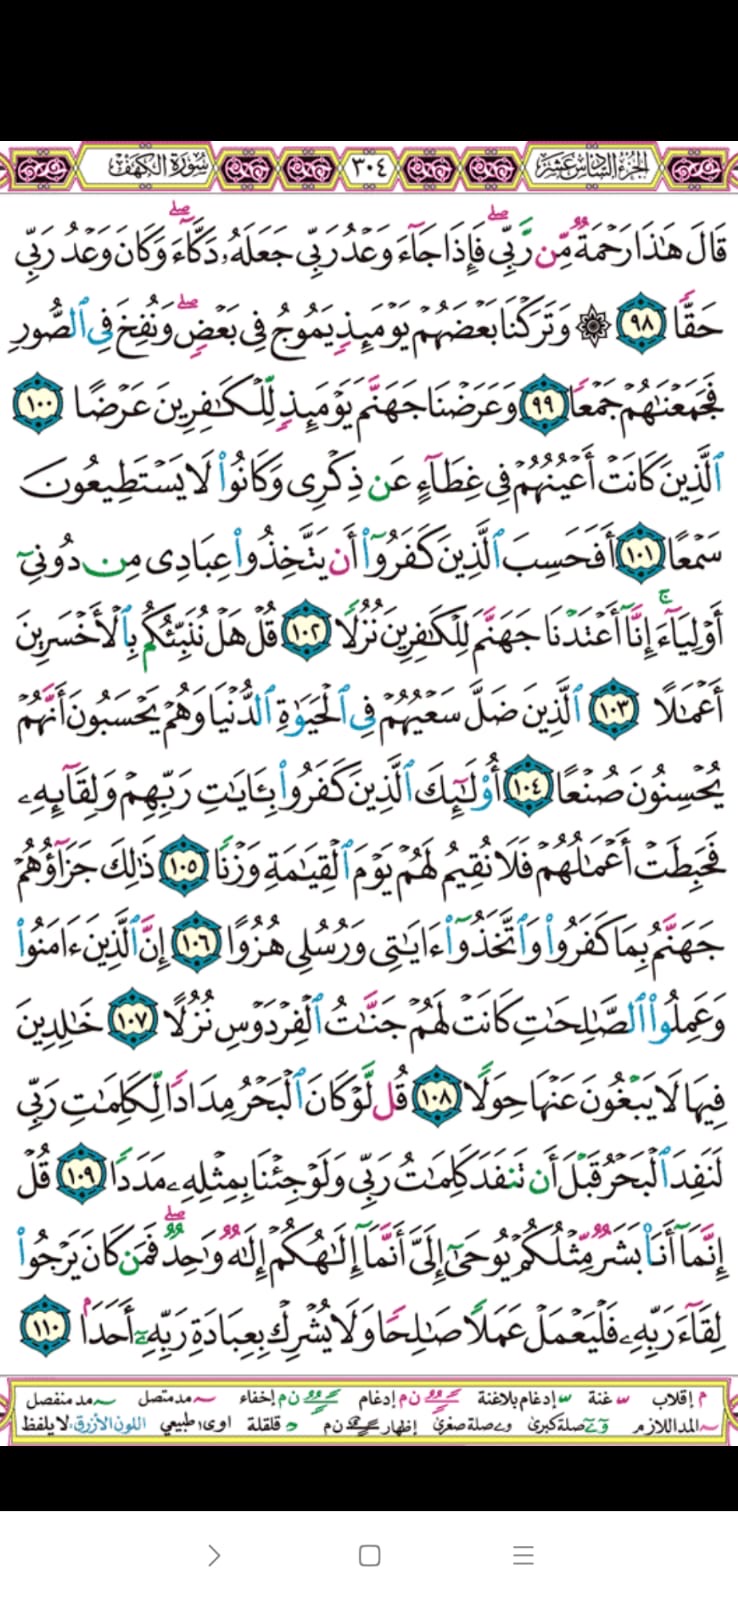 الجزء السادس عشر ٣٠٤ سورة الكهف
قَالَ هَٰذَا رَحْمَةٌ مِّن رَّبِّي ۖ فَإِذَا جَآءَ وَعْدُ رَبِّي جَعَلَهُۥ دَكَّآءَ ۖ وَكَانَ وَعْدُ رَبِّي
حَقًّا ٩٨ ۞ وَتَرَكْنَا بَعْضَهُمْ يَوْمَئِذٍ يَمُوجُ فِي بَعْضٍ ۖ وَنُفِخَ فِي ٱلصُّورِ
فَجَمَعْنَٰهُمْ جَمْعًا ٩٩ وَعَرَضْنَا جَهَنَّمَ يَوْمَئِذٍ لِّلْكَٰفِرِينَ عَرْضًا ١٠٠
ٱلَّذِينَ كَانَتْ أَعْيُنُهُمْ فِي غِطَآءٍ عَن ذِكْرِي وَكَانُوا۟ لَا يَسْتَطِيعُونَ
سَمْعًا ١٠١ أَفَحَسِبَ ٱلَّذِينَ كَفَرُوٓا۟ أَن يَتَّخِذُوا۟ عِبَادِي مِن دُونِيٓ
أَوْلِيَآءَ ۚ إِنَّآ أَعْتَدْنَا جَهَنَّمَ لِلْكَٰفِرِينَ نُزُلًا ١٠٢ قُلْ هَلْ نُنَبِّئُكُم بِٱلْأَخْسَرِينَ
أَعْمَٰلًا ١٠٣ ٱلَّذِينَ ضَلَّ سَعْيُهُمْ فِي ٱلْحَيَوٰةِ ٱلدُّنْيَا وَهُمْ يَحْسَبُونَ أَنَّهُمْ
يُحْسِنُونَ صُنْعًا ١٠٤ أُو۟لَٰٓئِكَ ٱلَّذِينَ كَفَرُوا۟ بِـَٔايَٰتِ رَبِّهِمْ وَلِقَآئِهِۦ
فَحَبِطَتْ أَعْمَٰلُهُمْ فَلَا نُقِيمُ لَهُمْ يَوْمَ ٱلْقِيَٰمَةِ وَزْنًا ١٠٥ ذَٰلِكَ جَزَآؤُهُمْ
جَهَنَّمُ بِمَا كَفَرُوا۟ وَٱتَّخَذُوٓا۟ ءَايَٰتِي وَرُسُلِي هُزُوًا ١٠٦ إِنَّ ٱلَّذِينَ ءَامَنُوا۟
وَعَمِلُوا۟ ٱلصَّٰلِحَٰتِ كَانَتْ لَهُمْ جَنَّٰتُ ٱلْفِرْدَوْسِ نُزُلًا ١٠٧ خَٰلِدِينَ
فِيهَا لَا يَبْغُونَ عَنْهَا حِوَلًا ١٠٨ قُل لَّوْ كَانَ ٱلْبَحْرُ مِدَادًا لِّكَلِمَٰتِ رَبِّي
لَنَفِدَ ٱلْبَحْرُ قَبْلَ أَن تَنفَدَ كَلِمَٰتُ رَبِّي وَلَوْ جِئْنَا بِمِثْلِهِۦ مَدَدًا ١٠٩ قُلْ
إِنَّمَآ أَنَا۠ بَشَرٌ مِّثْلُكُمْ يُوحَىٰٓ إِلَيَّ أَنَّمَآ إِلَٰهُكُمْ إِلَٰهٌ وَٰحِدٌ ۖ فَمَن كَانَ يَرْجُوا۟
لِقَآءَ رَبِّهِۦ فَلْيَعْمَلْ عَمَلًا صَٰلِحًا وَلَا يُشْرِكْ بِعِبَادَةِ رَبِّهِۦٓ أَحَدًۢا ١١٠
م إقلاب غنة إدغام بلاغنة ن م إدغام ن م إخفاء مد متصل مد منفصل
المد اللازم صلة كبرى صلة صغرى إظهار ن م قلقلة اوى طبيعي اللون الأزرق: لا يلفظ